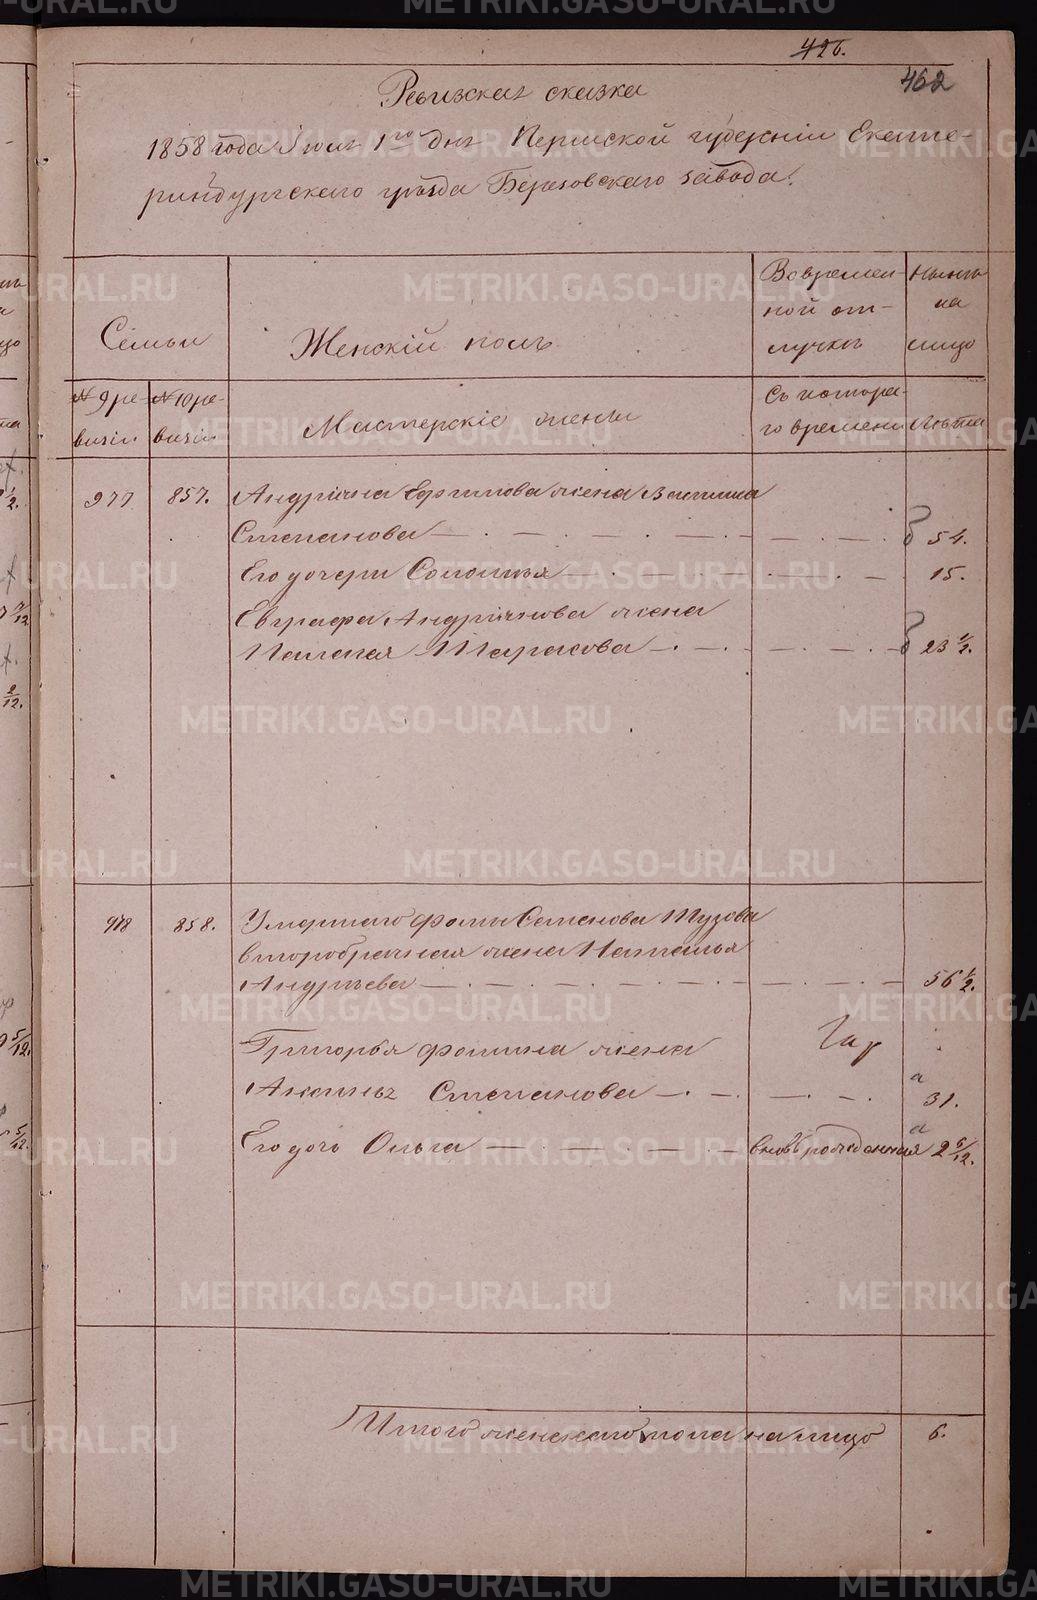 426.
462
Ревизская сказка
1858 года Июня 1го дня Пермской губерніи Екате-
ринбургского уѣзда Березовскаго завода.
Семьи
Женскій полъ
Во времен-
ной от-
лучкѣ
Нынѣ
на
лицо
№ 9 ре-
визіи
№ 10 ре-
визіи
Мастерскіе жены
Съ котора-
го времени
Лѣта
977
857.
Андріяна Ефимова жена
Степанова
54.
Его дочери Соломія
15.
Евграфа Андріянова жена
Тарасова
23 1/2.
978
858.
Умершаго Фомы Семенова Тузова
второбрачная жена Наталья
Андреева
56 1/2.
Григорья Фомина жена
Аксинья Степанова
31.
Его дочь Ольга
вновь рожденная
2 5/12.
Итого женскаго пола на лицо
6.
METRIKI.GASO-URAL.RU